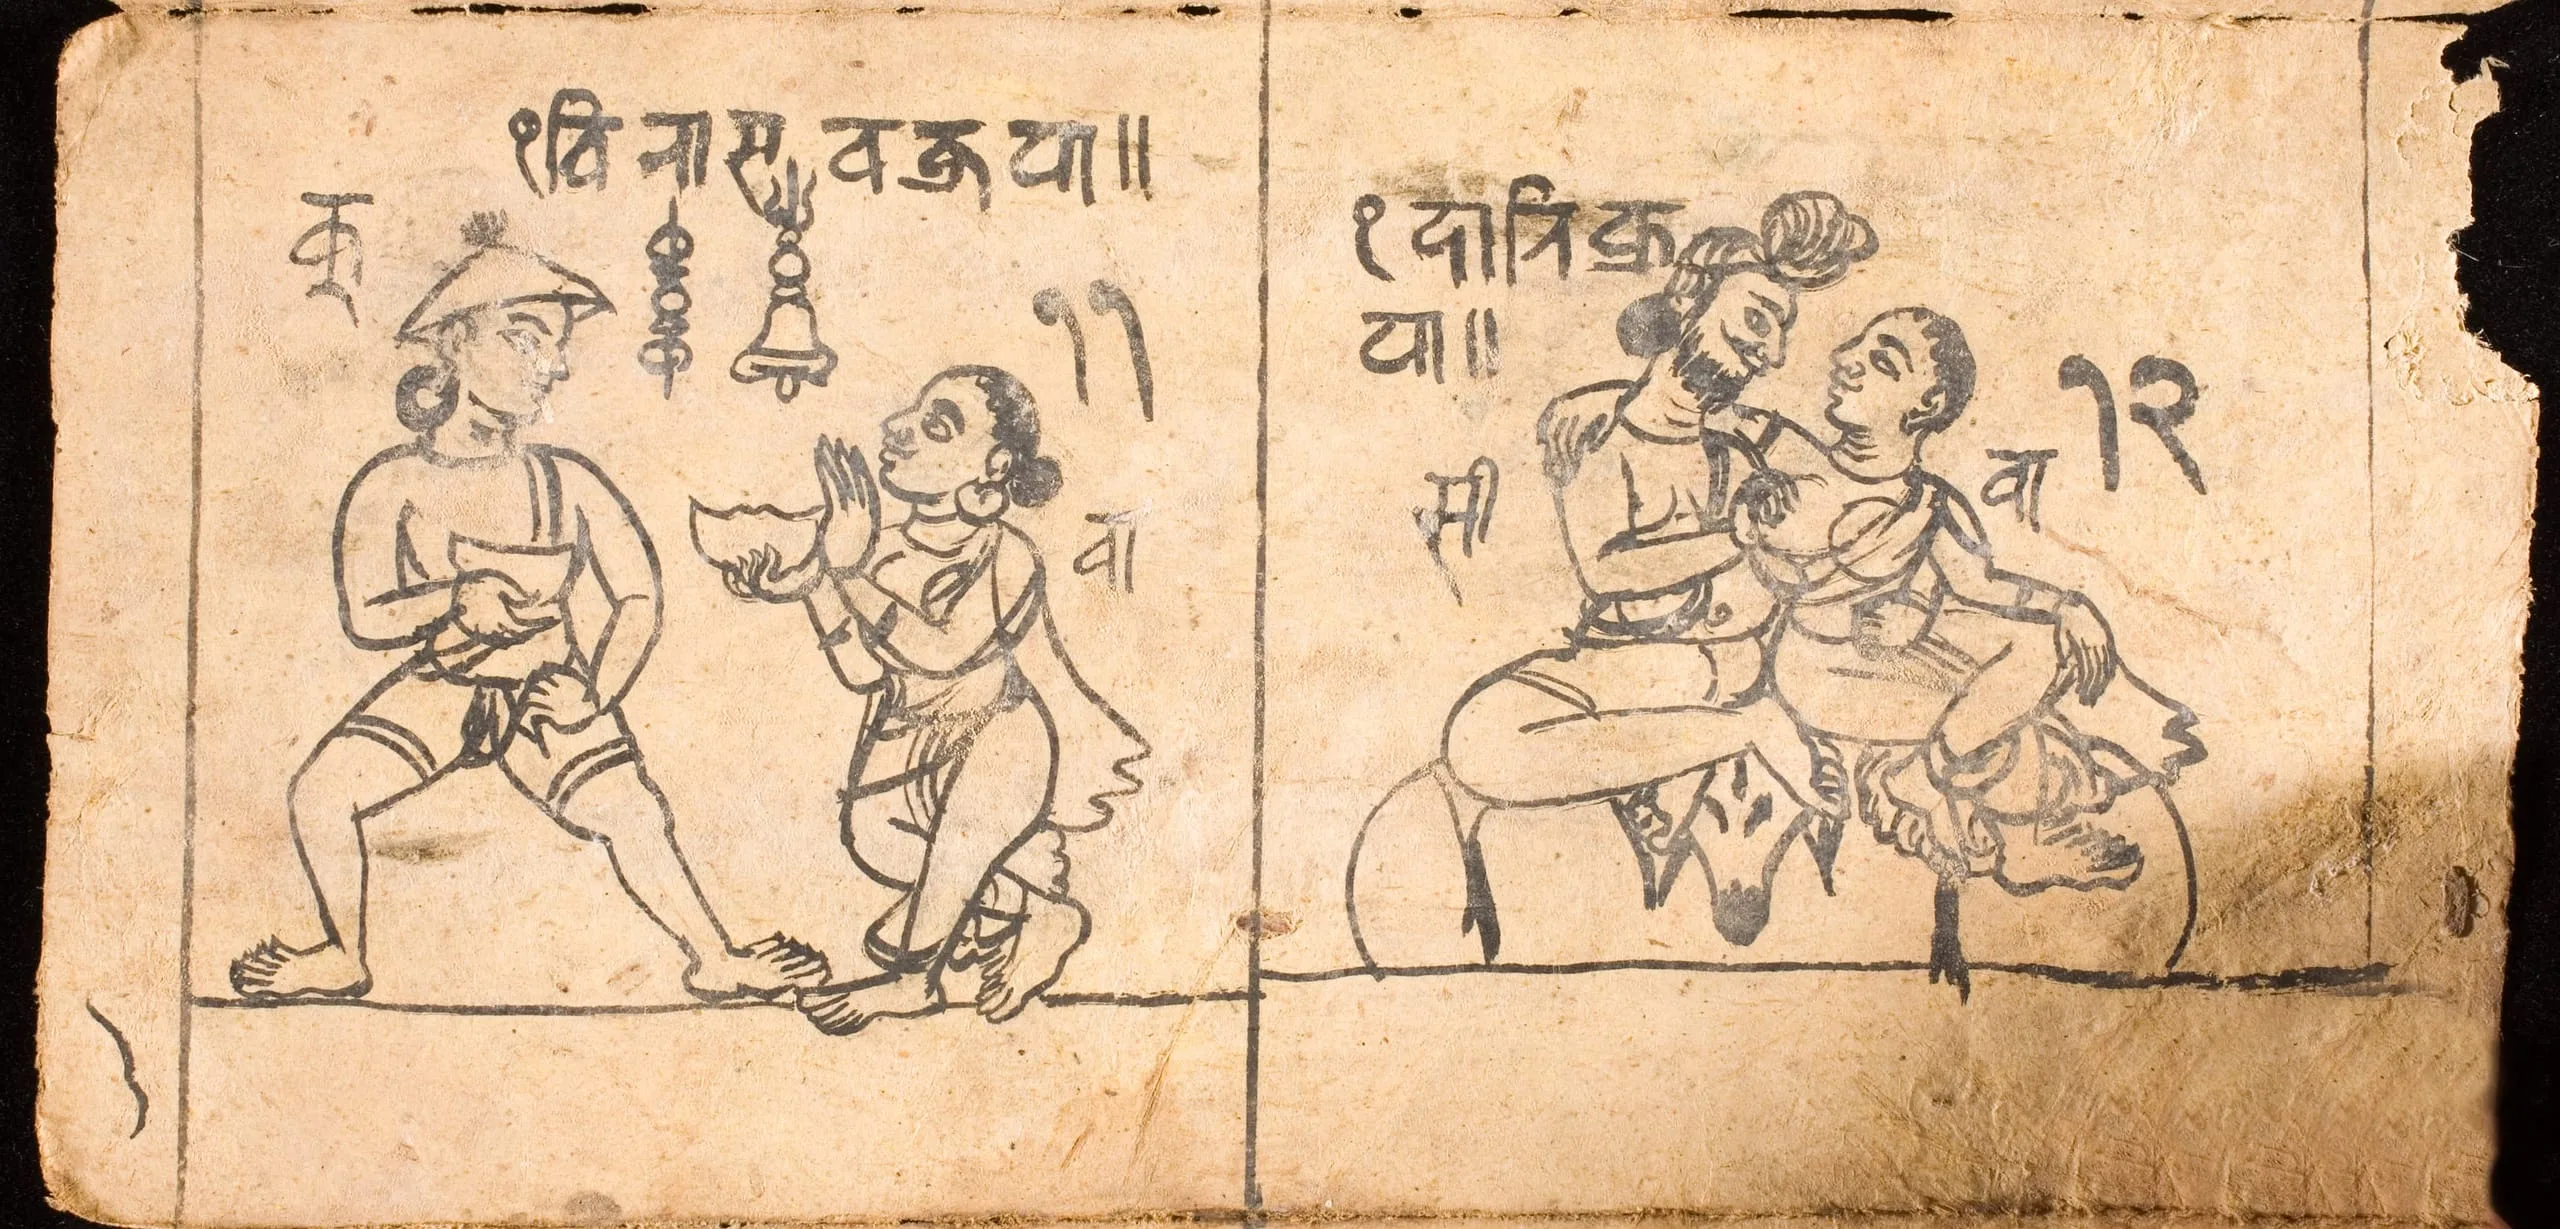 १विनासवक्रया॥
कृ
११
वा
१दात्रिक्र
या॥
सी
वा
१२